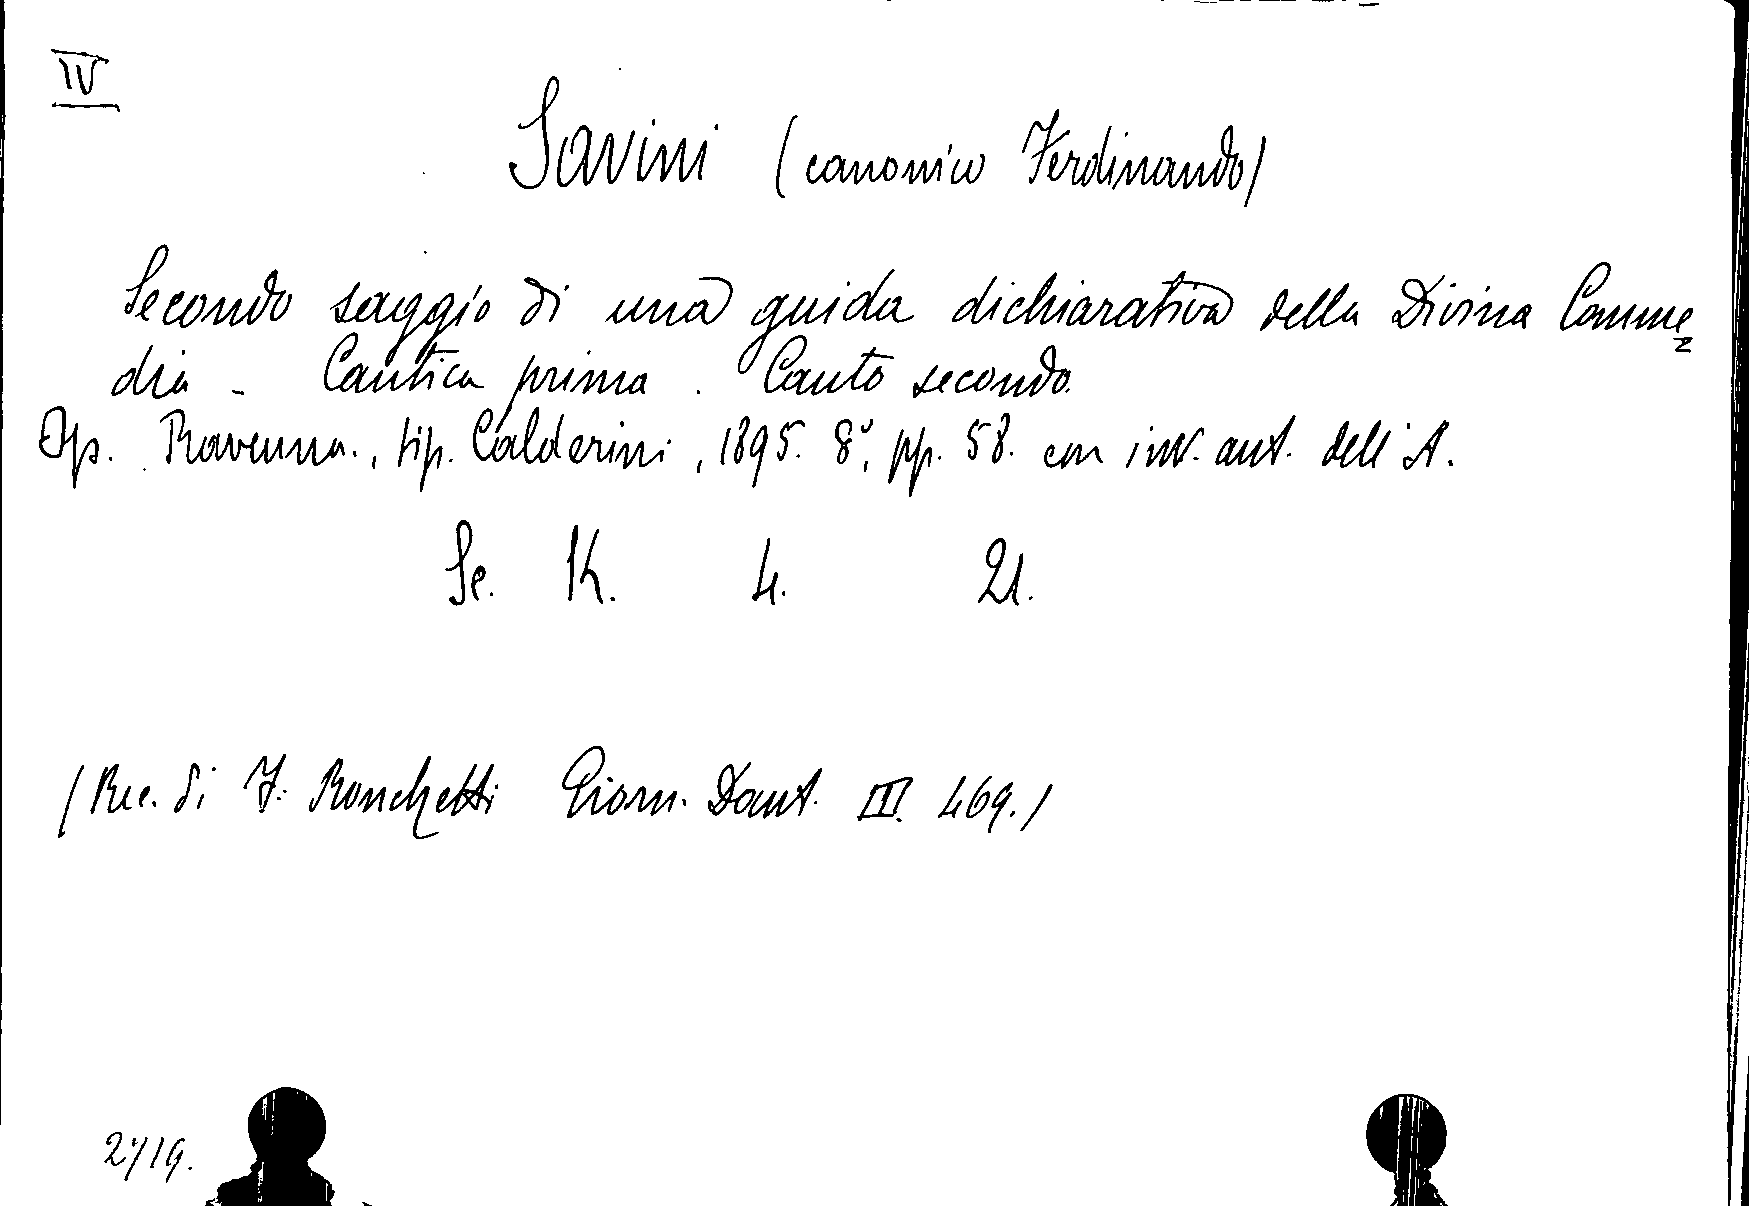 IV
Savini (canonico Ferdinando)
Secondo saggio di una guida dichiarativa della Divina Comme=
dia - Cantica prima. Canto secondo.
Op. Ravenna., tip. Calderini, 1895. 8°, pp. 58. con inv. aut. dell'A.
Se. K. 4. 21.
(Rec. di F. Ronchetti Giorn. Dant. III. 469.)
2719.